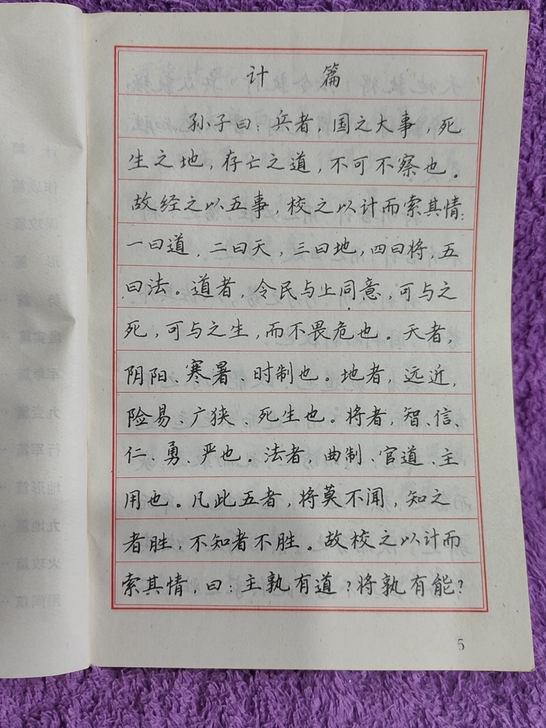 计 篇
孙子曰：兵者，国之大事，死
生之地，存亡之道，不可不察也。
故经之以五事，校之以计而索其情：
一曰道，二曰天，三曰地，四曰将，五
曰法。道者，令民与上同意，可与之
死，可与之生，而不畏危也。天者，
阴阳、寒暑、时制也。地者，远近，
险易、广狭、死生也。将者，智、信、
仁、勇、严也。法者，曲制、官道、主
用也。凡此五者，将莫不闻，知之
者胜，不知者不胜。故校之以计而
索其情，曰：主孰有道？将孰有能？
5